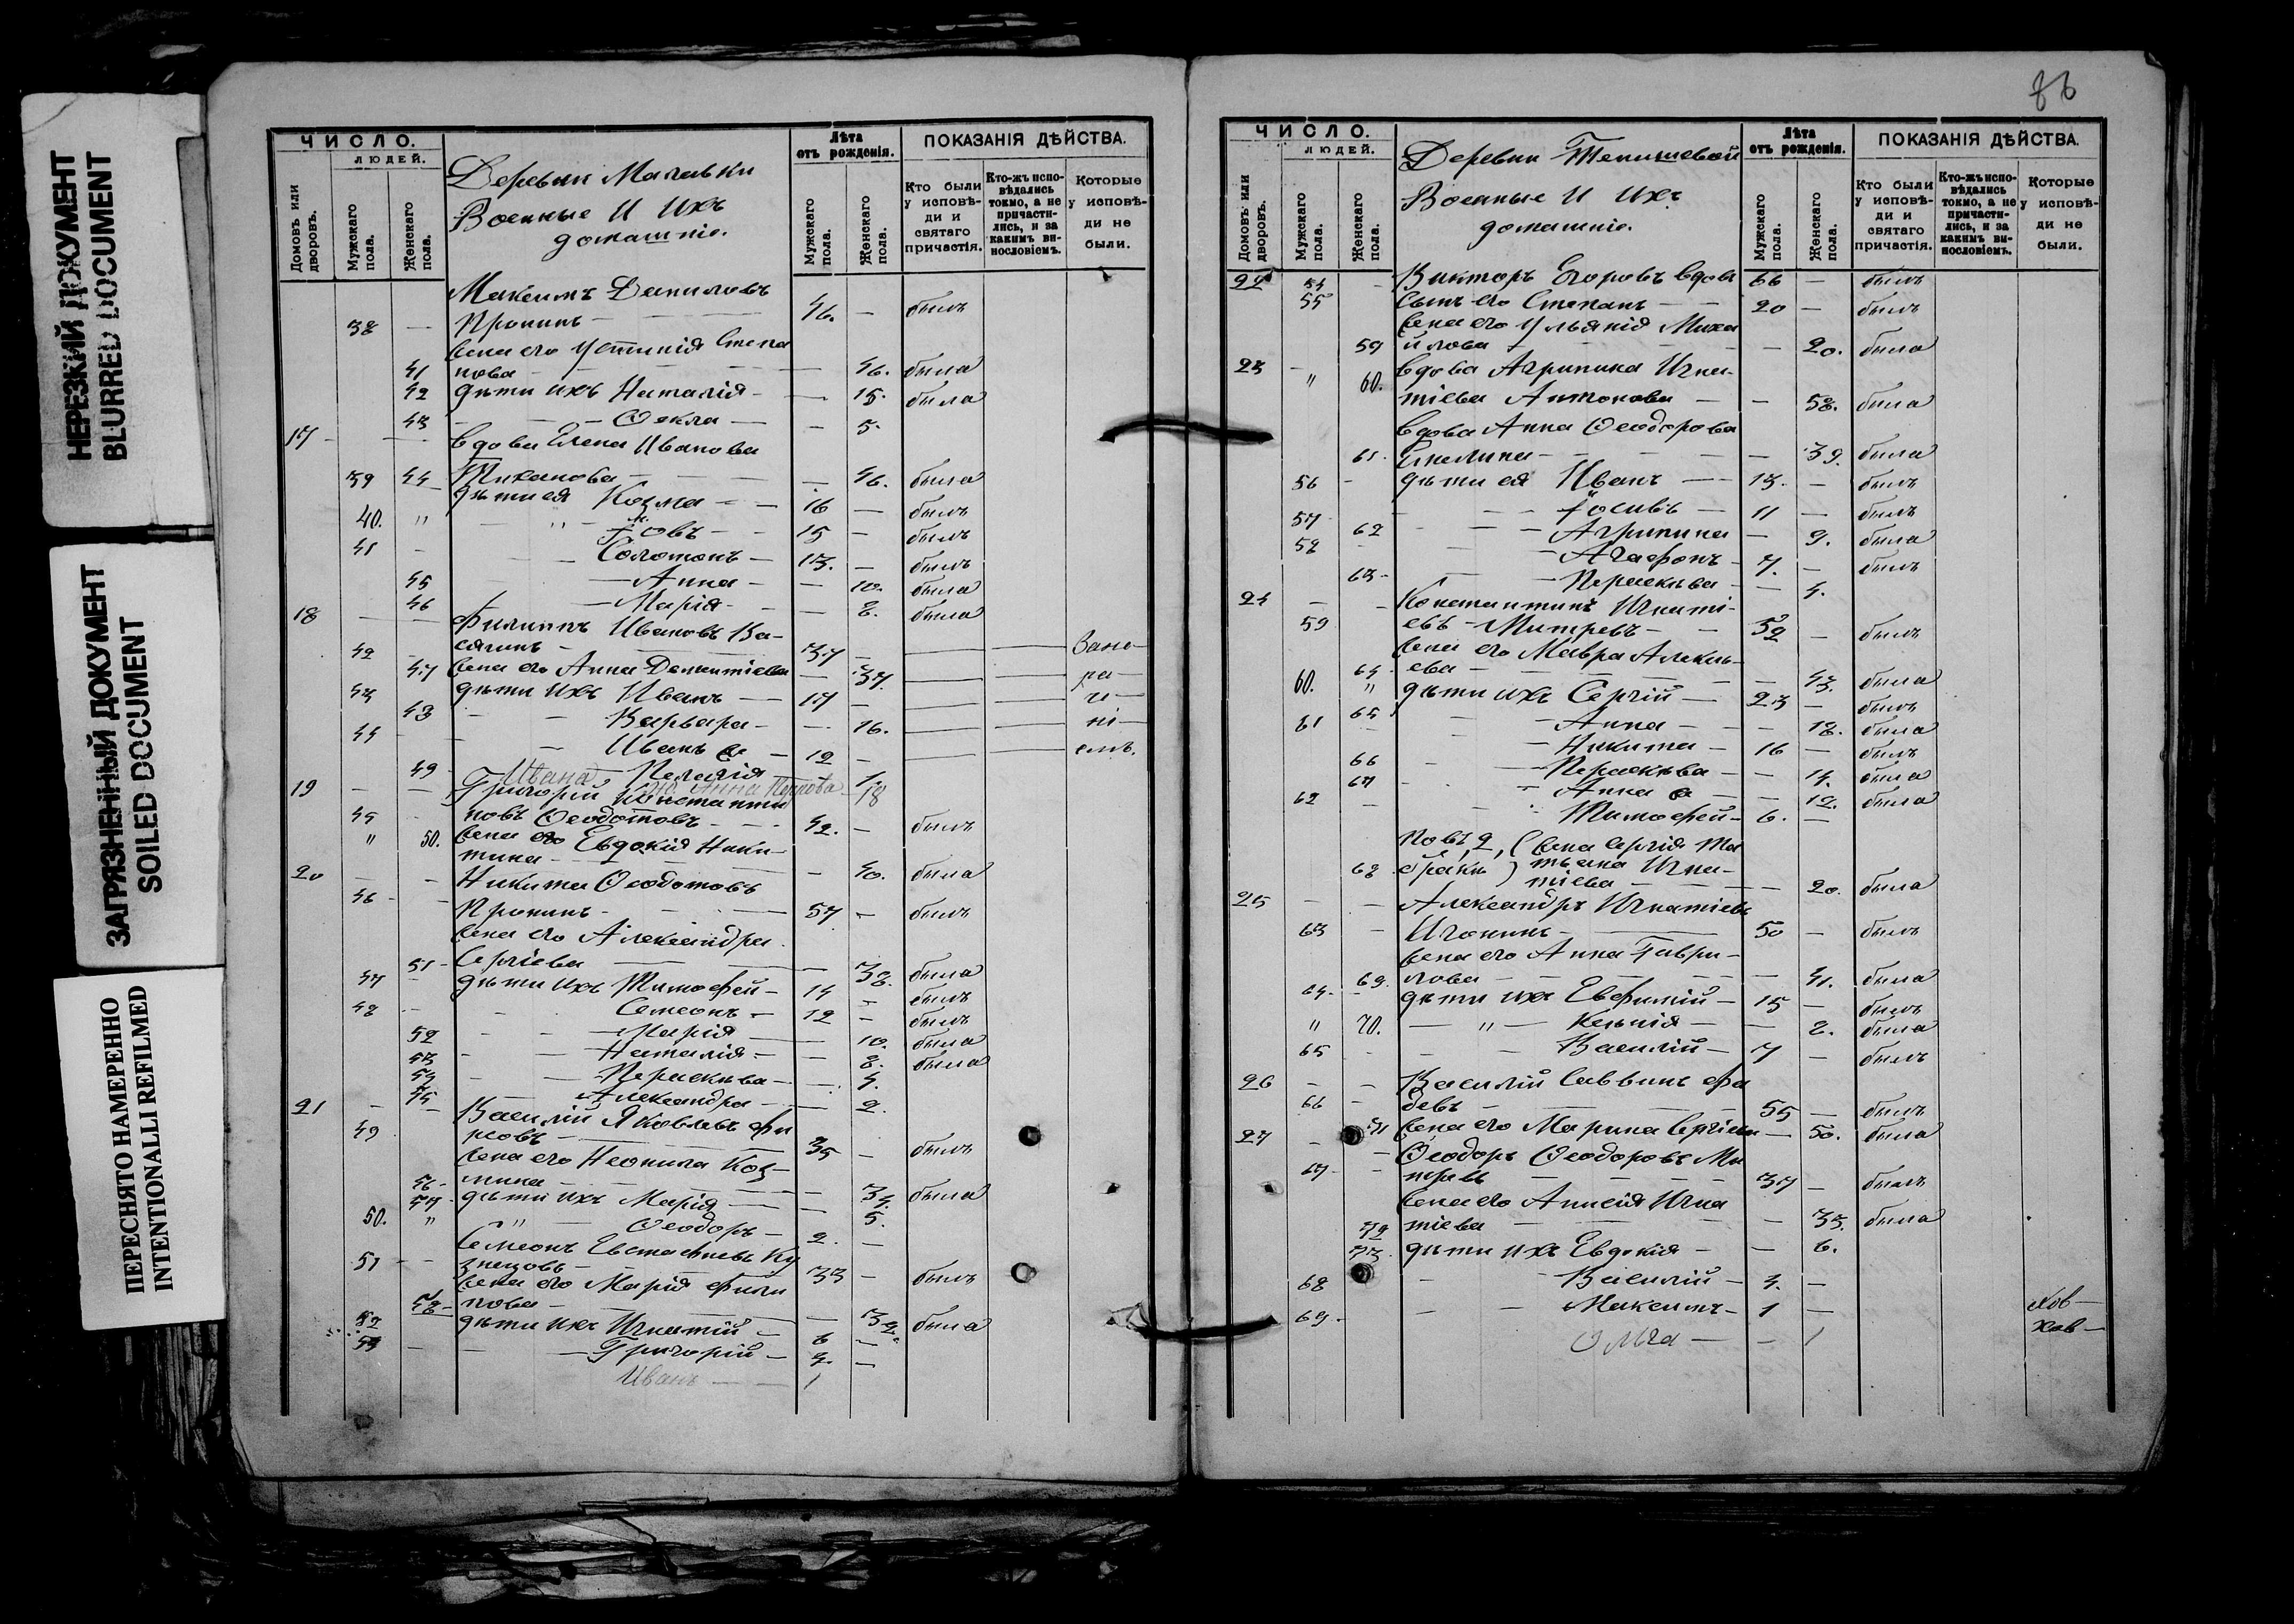 НЕРЕЗКИЙ ДОКУМЕНТ
BLURRED DOCUMENT
ЗАГРЯЗНЕННЫЙ ДОКУМЕНТ
SOILED DOCUMENT
ПЕРЕСНЯТО НАМЕРЕННО
INTENTIONALLI REFILMED
ЧИСЛО.
ЛЮДЕЙ.
Домовъ или дворовъ.
Мужскаго пола.
Женскаго пола.
Деревни
Военные и ихъ
домашніе.
Лѣта
отъ рожденія.
Мужскаго пола.
Женскаго пола.
ПОКАЗАНІЯ ДѢЙСТВА.
Кто были у исповѣди и святаго причастія.
Кто-жъ исповѣдались токмо, а не причастились, и за какимъ винословіемъ.
Которые у исповѣди не были.
Максимъ Даниловъ
38 — Пронинъ — 46. — былъ
жена его Устинія Степа
41 нова — 46. была
42 дѣти ихъ Наталія — 15. была
43 — Ѳекла — 5.
17 — вдова Елена Иванова
39 44 Тиханова — 46. была
дѣти ея Козма — 16 — былъ
40. " — " — Іовъ — 15 — былъ
41 — Соломонъ — 13. — былъ
45 — Анна — 10. была
46 — Марія — 8. была
18 — Филиппъ Ивановъ Ка-
42 сягинъ — 37 — Вано-
47 жена его Анна — 37. — ра-
43 дѣти ихъ Иванъ — 17 — ги-
48 — Варвара — 16. — ні-
44 — Иванъ — 12 — емъ.
49 — Пелагія
Ивана Анна Петрова 18
19 — Григорій Константи
45 новъ Ѳеодотовъ — 42. — былъ
" 50. жена его Евдокія Ники-
тина — 40. была
20 — Никита Ѳеодотовъ
46 — Пронинъ — 57 — былъ
жена его Александра
51 Сергіева — 38. была
47 дѣти ихъ Тимофей — 14 — былъ
48 — Семеонъ — 12 — былъ
52 — Марія — 10. была
53 — Наталія — 8. была
54 — Параскѣва — 4.
55 — Александра — 2.
21 — Василій Яковлевъ Фи
49 рсовъ — 35 — былъ
жена его Неонила Коз-
56 мина — 34. была
57 дѣти ихъ Марія — 5.
50. " — " — Ѳеодоръ — 2. —
Семеонъ Евстафіевъ Ку
51 знецовъ — 33 — былъ
жена его Марія Фили
58 пова — 32. была
52 дѣти ихъ Игнатій — 6 —
53 — Григорій — 4. —
Иванъ — 1
86
ЧИСЛО.
ЛЮДЕЙ.
Домовъ или дворовъ.
Мужскаго пола.
Женскаго пола.
Деревни
Военные и ихъ
домашніе.
Лѣта
отъ рожденія.
Мужскаго пола.
Женскаго пола.
ПОКАЗАНІЯ ДѢЙСТВА.
Кто были у исповѣди и святаго причастія.
Кто-жъ исповѣдались токмо, а не причастились, и за какимъ винословіемъ.
Которые у исповѣди не были.
22 54 — Викторъ Егоровъ вдовъ 66 — былъ
55 сынъ его Степанъ — 20 — былъ
жена его Ульянія Миха
59 йлова — 20. была
23 — вдова Агрипина Игна-
" 60. тіева Антонова — 58. была
вдова Анна Ѳеодорова
61. — 39. была
56 — дѣти ея Иванъ — 13. — былъ
57 — Іосифъ — 11 — былъ
62 — Агрипина — 9. была
58 — Агафонъ — 7. — былъ
63 — Параскѣва — 4.
24 — Константинъ Игнаті-
59 евъ Митревъ — 52 — былъ
жена его Мавра Алексѣ-
64 ева — 43. была
60. " дѣти ихъ Сергій — 23 — былъ
65 — Анна — 18. была
61 — Никита — 16 — былъ
66 — Параскѣва — 14. была
67 — Анна — 12. была
62 — Тимофей — 6. —
Новъ, 2, (жена Сергія Та
68 браки) тьяна Игна-
тіева — 20. была
25 — Александръ Игнатіевъ
63 — Игонинъ — 50 — былъ
жена его Анна Гаври-
69. лова — 41. была
64. — дѣти ихъ Евфимій — 15 — былъ
" 70. — " — Ксенія — 8. была
65 — Василій — 7 — былъ
26 — Василій Саввинъ Фа
66 — девъ — 55 — былъ
71 жена его Марина Сергіева — 50. была
27 — Ѳеодоръ Ѳеодоровъ Ми
67 — 37 — былъ
жена его Анисія Игна
72 тіева — 35. была
73. дѣти ихъ Евдокія — 6.
68 — Василій — 4. —
69. — Максимъ — 1 —
Ольга — 1